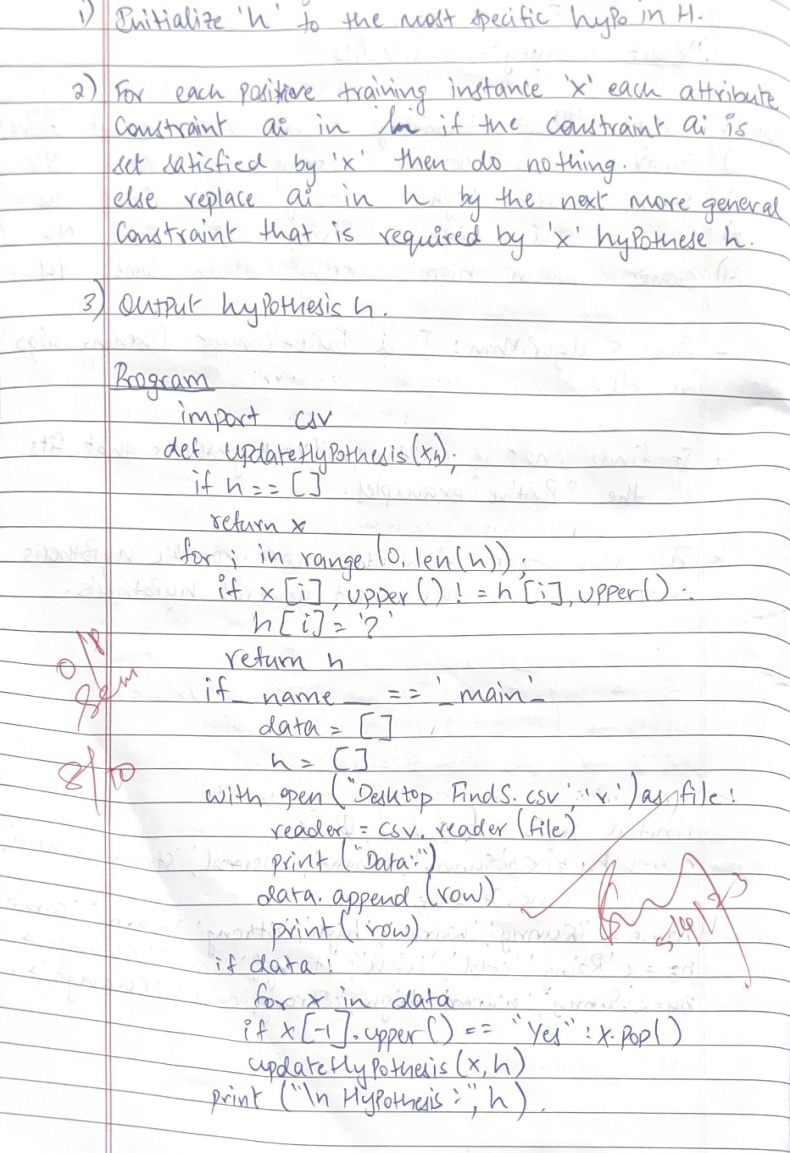 1) Initialize 'h' to the most specific hypo in H.
2) For each positive training instance 'x' each attribute
Constraint ai in h if the constraint ai is
set satisfied by 'x' then do nothing.
else replace ai in h by the next more general
Constraint that is required by 'x' hypothese h.
3) Output hypothesis h.
Program
import csv
def updateHypothesis(x,h);
if h == []
return x
for i in range (0, len(h));
if x[i], upper() != h[i], upper() :
h[i] = '?'
return h
if _ name _ == '_ main _
data = []
h = []
with open ("Desktop FindS. csv', 'r') as file :
reader = csv. reader (file)
print ("Data:")
data. append (row)
print (row)
if data :
for x in data
if x[-1]. upper() == "Yes" : x. pop()
updateHypothesis (x, h)
print ("\n Hypothesis :", h)
o/p
8/10